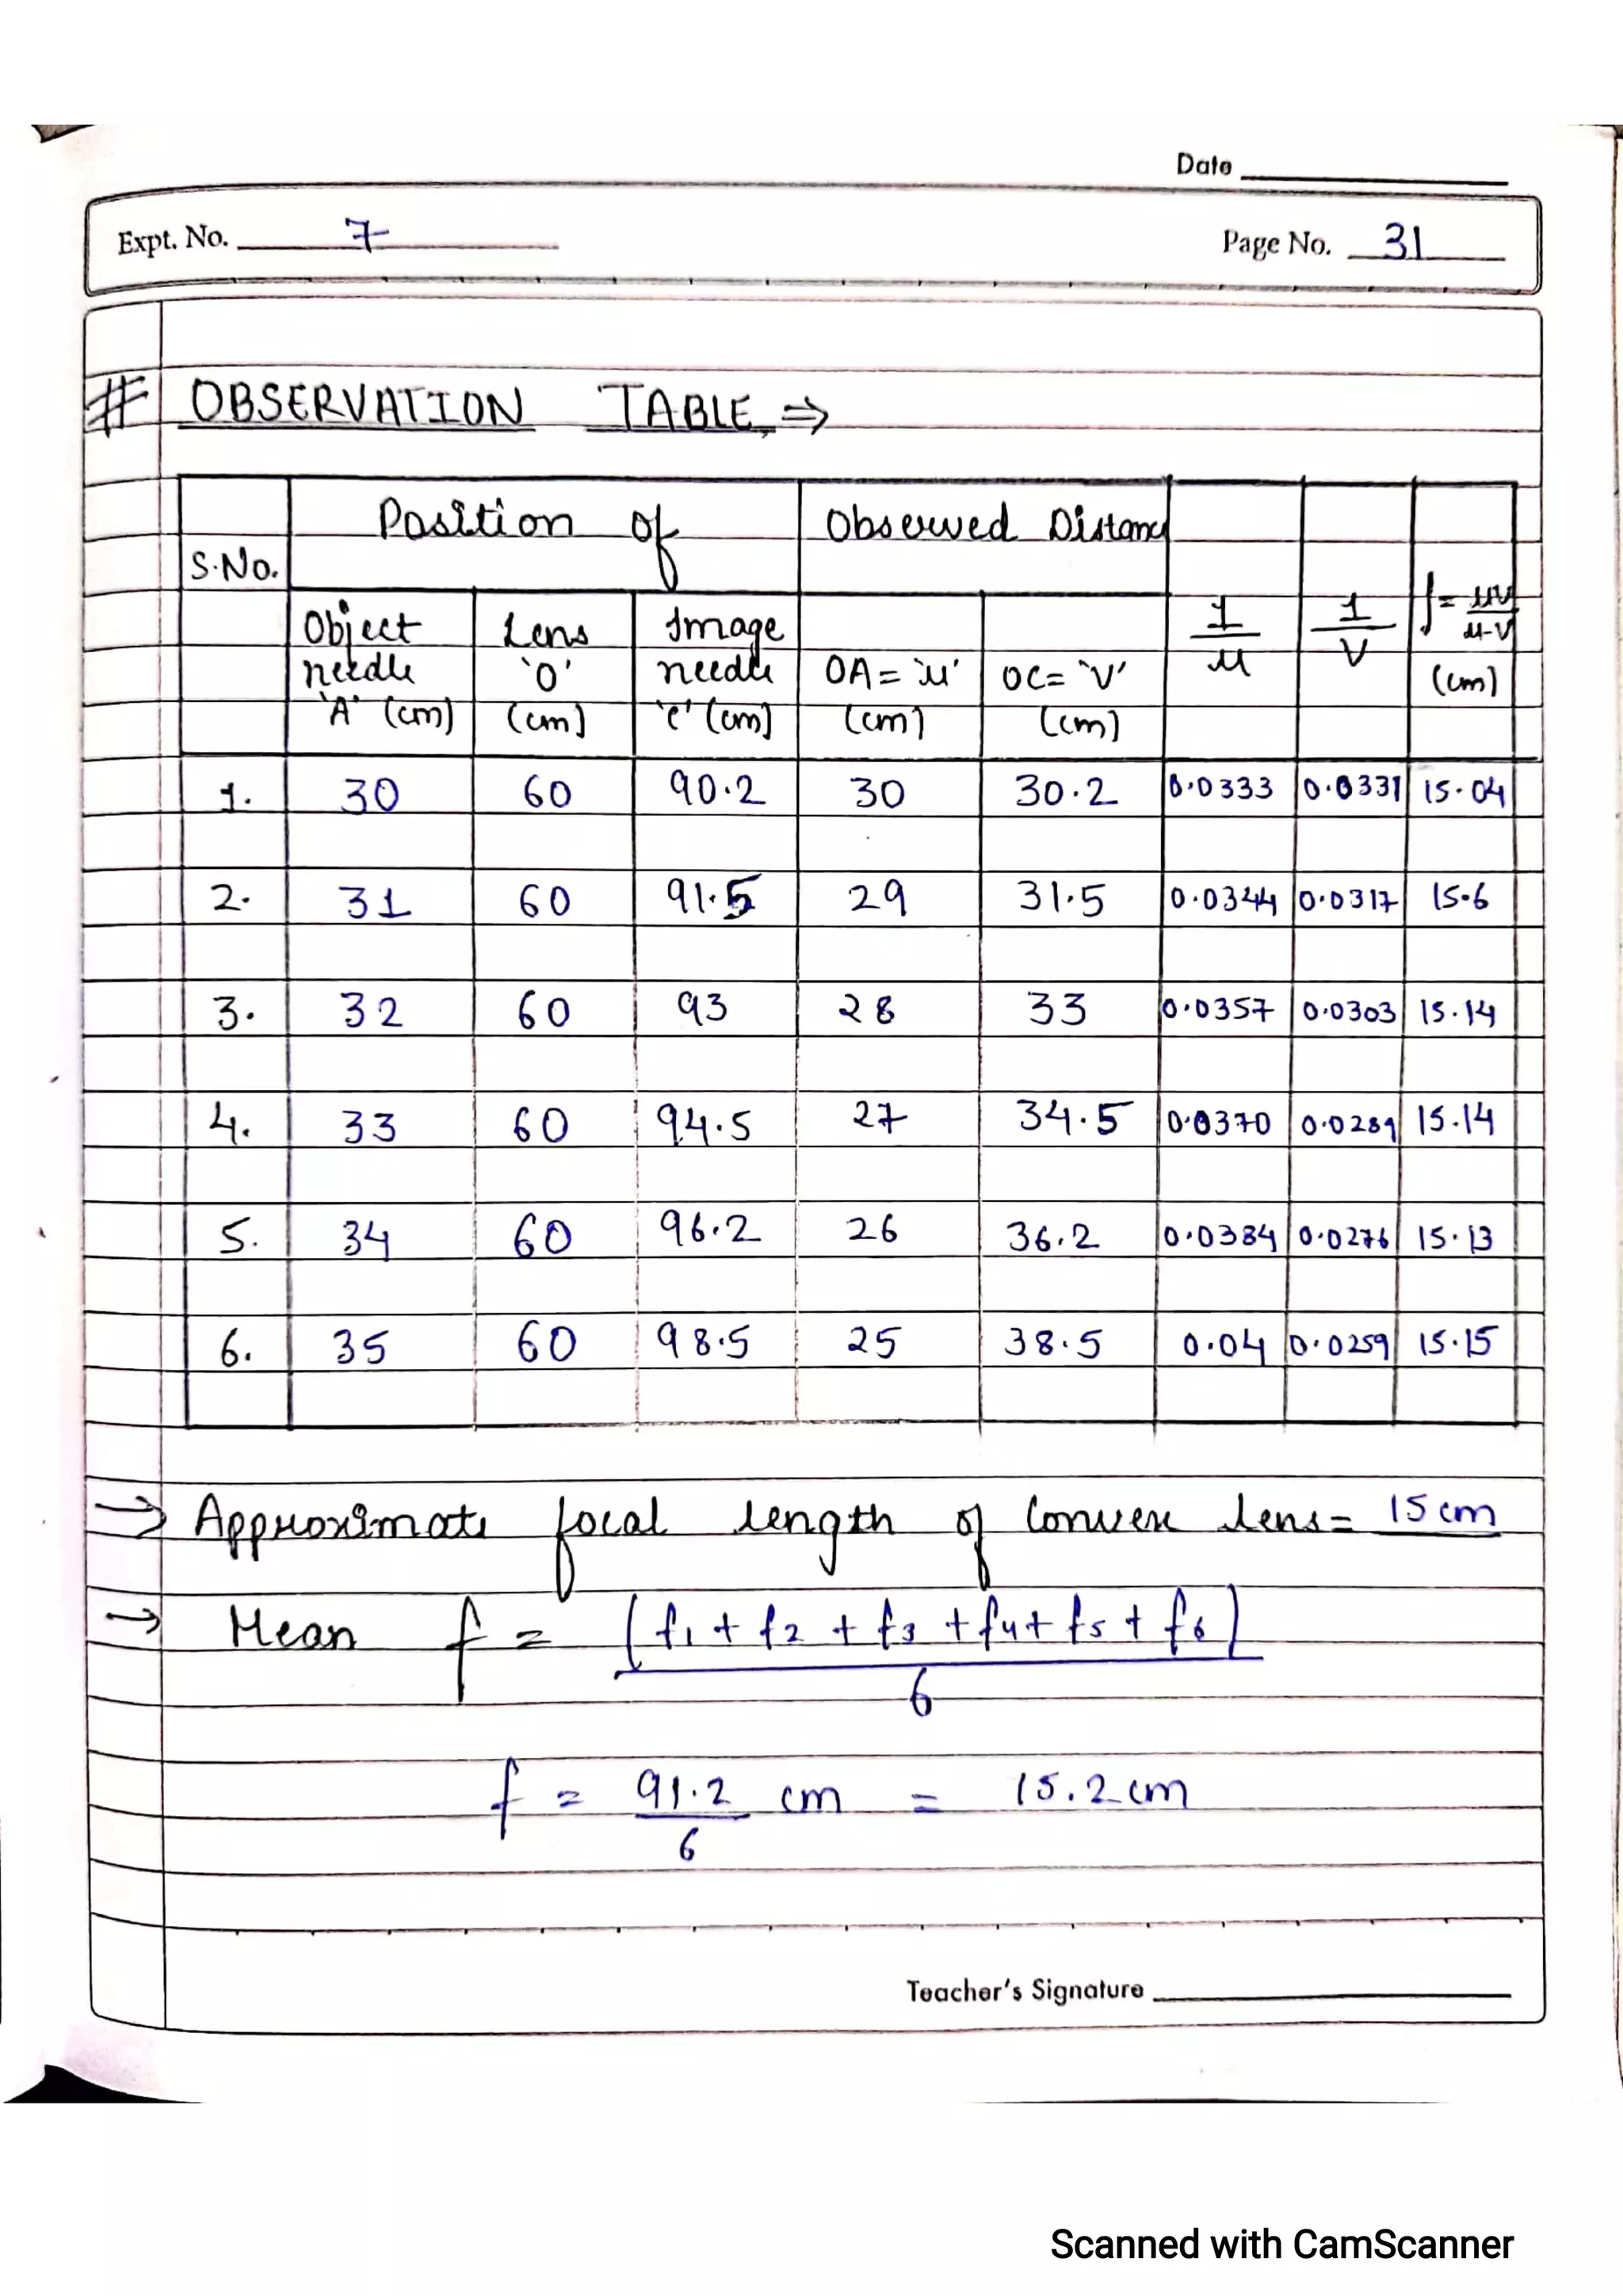 Date
Expt. No. 7
Page No. 31
# OBSERVATION TABLE ⇒
S.No. Position of Observed Distance 1/u 1/v f = uv/u-v (cm)
Object needle 'A' (cm) Lens 'O' (cm) Image needle 'C' (cm) OA = 'u' (cm) OC = 'V' (cm)
1. 30 60 90.2 30 30.2 0.0333 0.0331 15.04
2. 31 60 91.5 29 31.5 0.0344 0.0317 15.6
3. 32 60 93 28 33 0.0357 0.0303 15.14
4. 33 60 94.5 27 34.5 0.0370 0.0289 15.14
5. 34 60 96.2 26 36.2 0.0384 0.0276 15.13
6. 35 60 98.5 25 38.5 0.04 0.0259 15.15
→ Approximate focal length of Convex lens = 15 cm
→ Mean f = (f1 + f2 + f3 + f4 + f5 + f6)
6
f = 91.2 cm = 15.2 cm
6
Teacher's Signature
Scanned with CamScanner